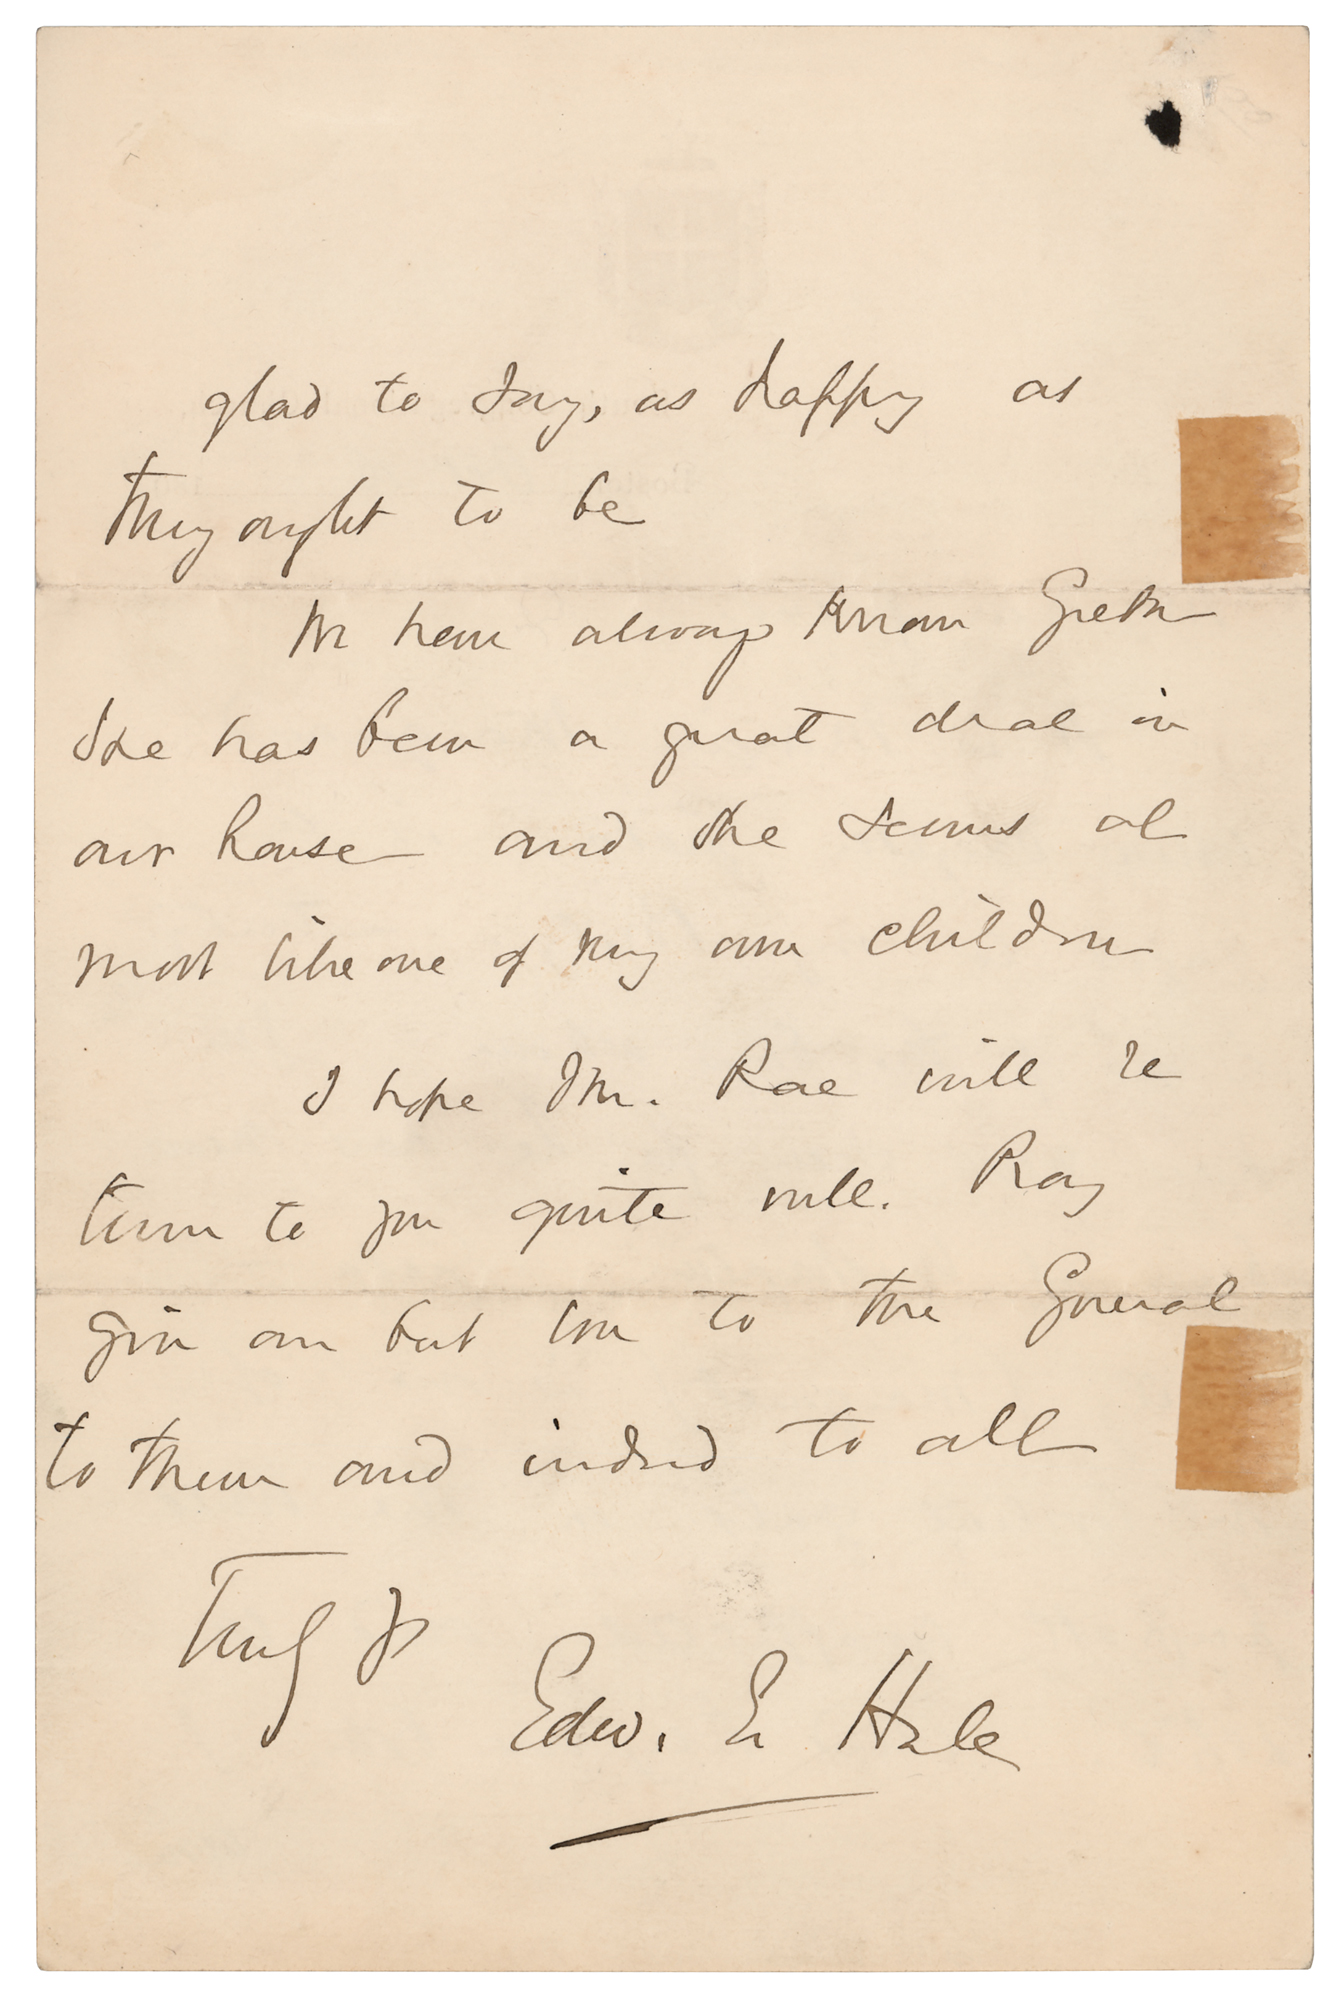 glad to say, as happy as
they ought to be
We have always known Greta
She has been a great deal in
our house and she seems al
most like one of my own children
I hope Mr. Rae will re
turn to you quite well. Pray
give our best love to the General
to them and indeed to all
Truly yrs
Edw. E Hale